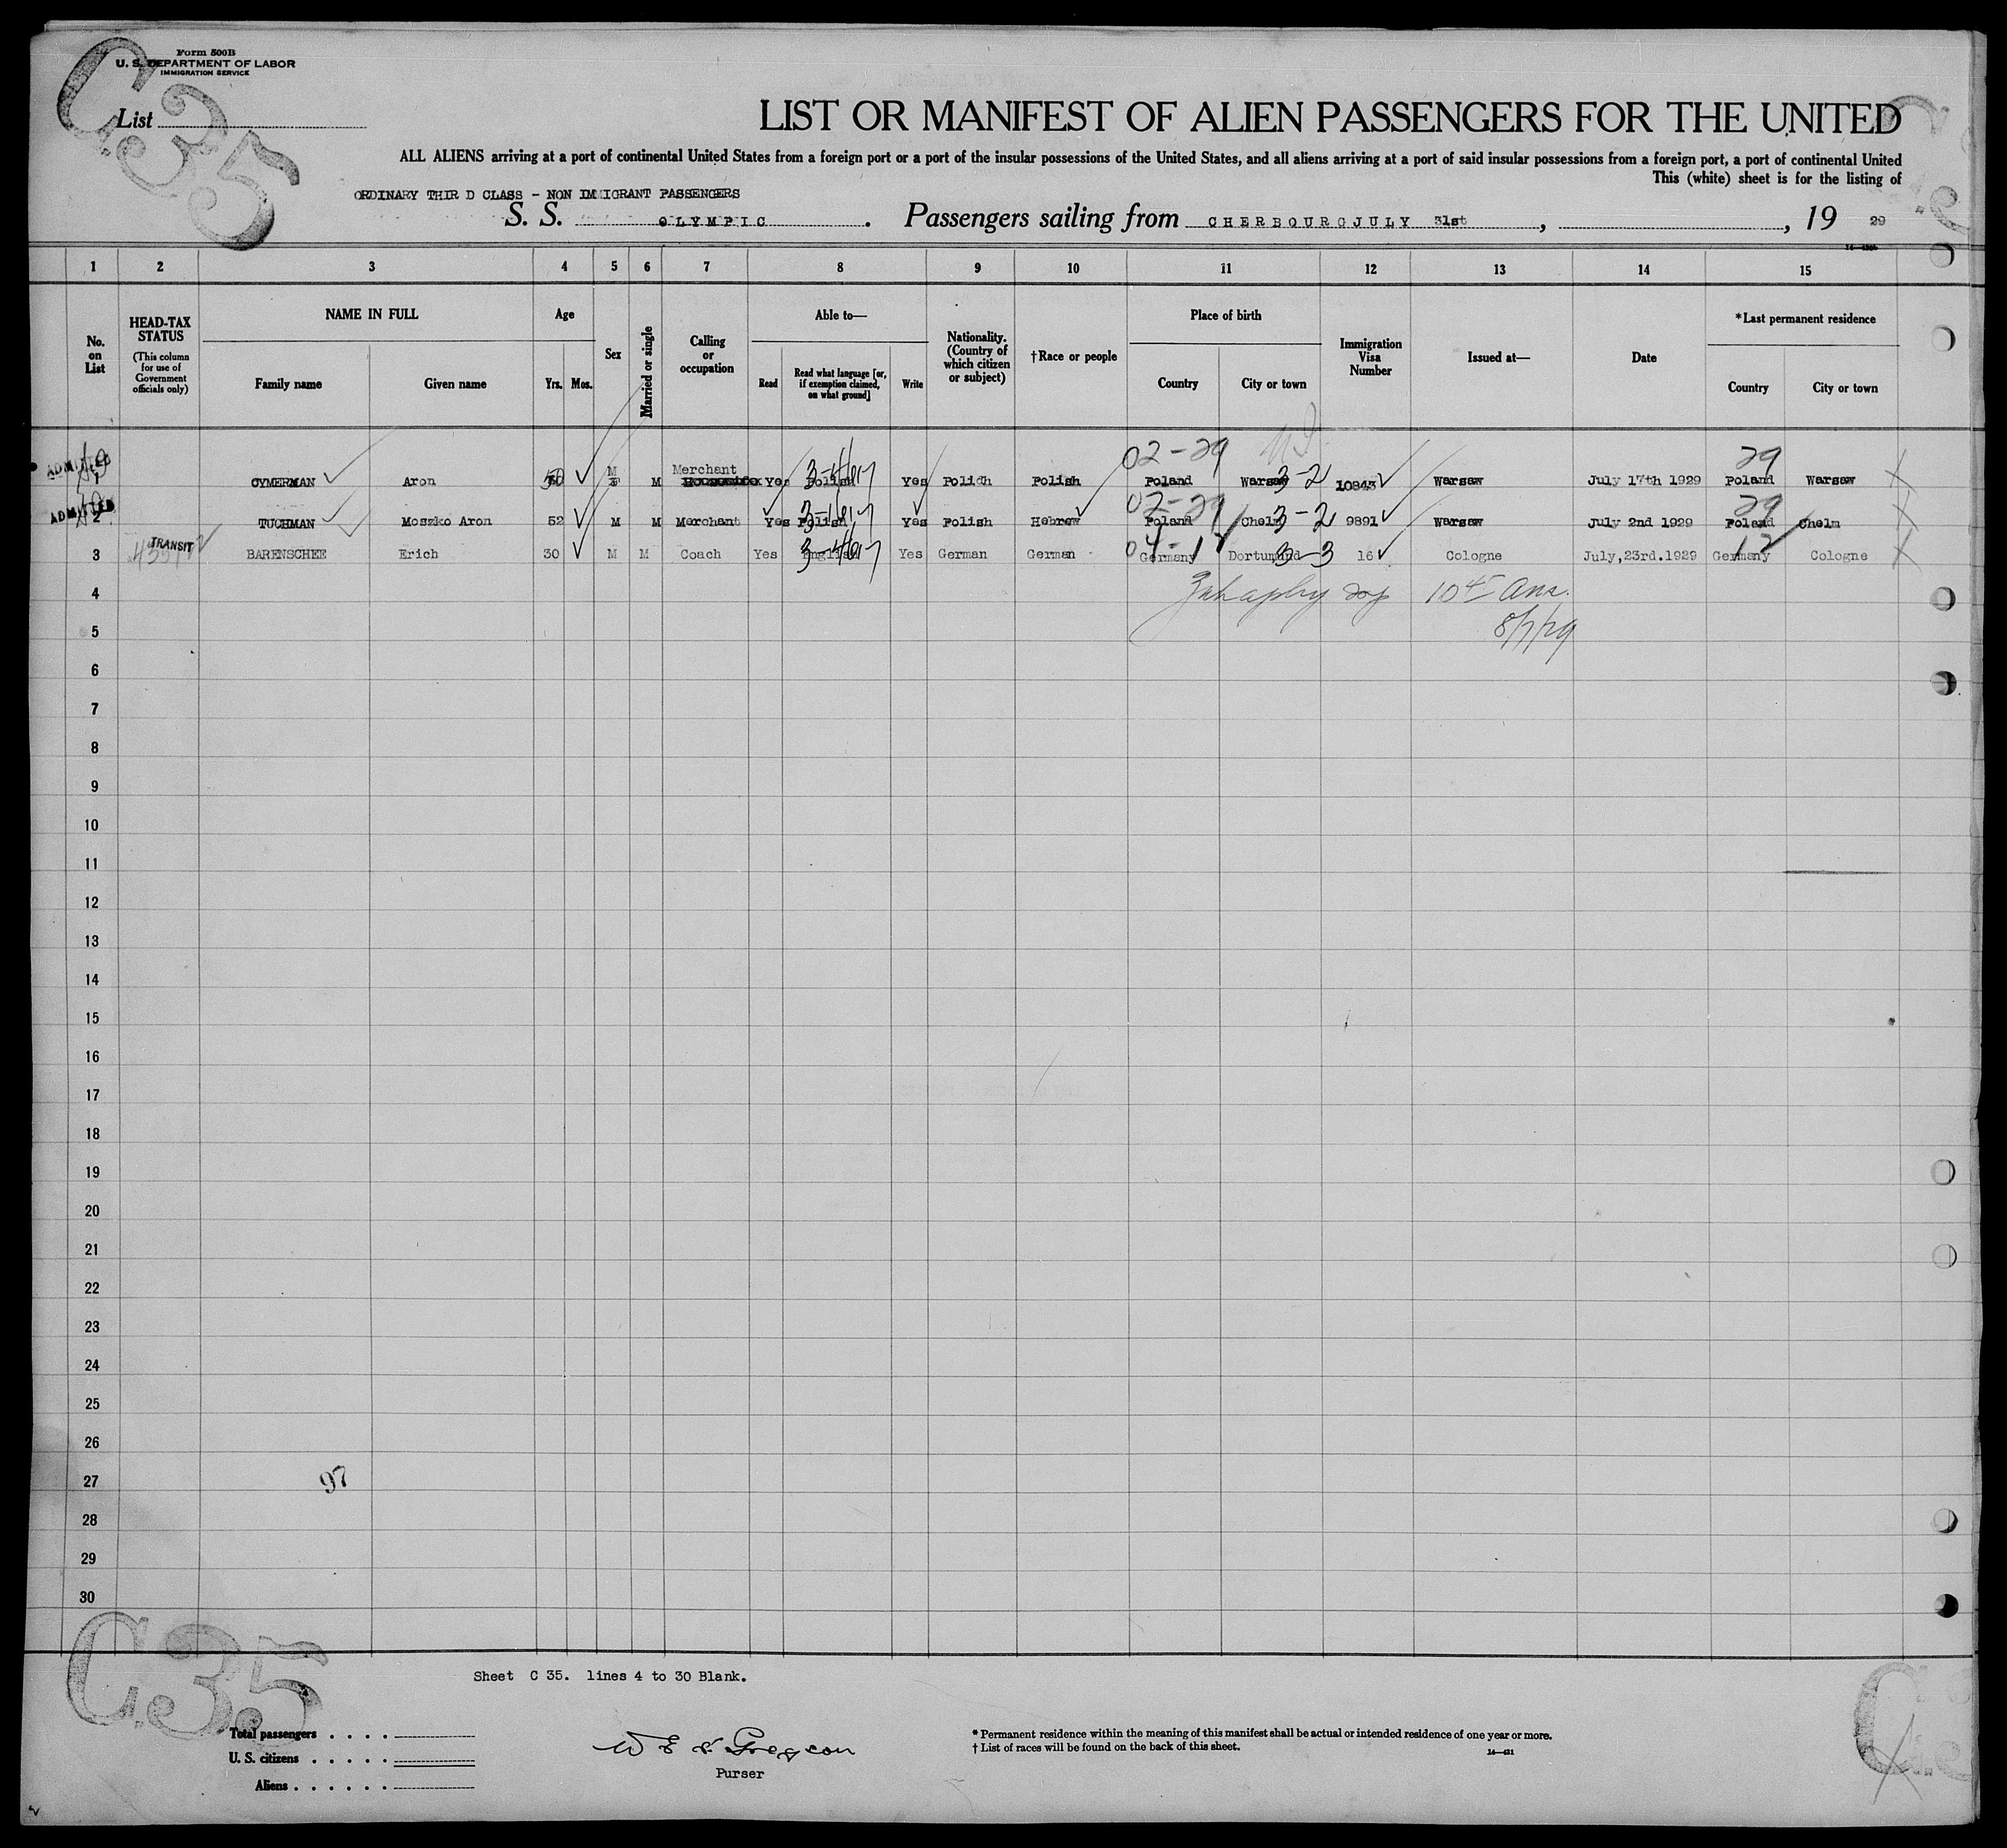 Form 500B
U. S. DEPARTMENT OF LABOR
IMMIGRATION SERVICE
C 35
List
LIST OR MANIFEST OF ALIEN PASSENGERS FOR THE UNITED
ALL ALIENS arriving at a port of continental United States from a foreign port or a port of the insular possessions of the United States, and all aliens arriving at a port of said insular possessions from a foreign port, a port of continental United
This (white) sheet is for the listing of
ORDINARY THIR D CLASS - NON IMMIGRANT PASSENGERS
S. S. OLYMPIC. Passengers sailing from CHERBOURG JULY 31st, , 19 29
1 2 3 4 5 6 7 8 9 10 11 12 13 14 15
No. on List
HEAD-TAX STATUS
(This column for use of Government officials only)
NAME IN FULL
Family name Given name
Age
Yrs. Mos.
Sex
Married or single
Calling or occupation
Able to—
Read
Read what language [or, if exemption claimed, on what ground]
Write
Nationality. (Country of which citizen or subject)
†Race or people
Place of birth
Country City or town
Immigration Visa Number
Issued at—
Date
*Last permanent residence
Country City or town
02-29 29
ADMITTED 1 CYMERMAN Aron 50 M M Merchant Yes Polish 3-4617 Yes Polish Polish Poland Warsaw 3-2 10843 Warsaw July 17th 1929 Poland Warsaw
02-29 29
ADMITTED 2 TUCHMAN Moszko Aron 52 M M Merchant Yes Polish Yes Polish Hebrew Poland Chelm 3-2 9891 Warsaw July 2nd 1929 Poland Chelm
3 TRANSIT BARENSCHEE Erich 30 M M Coach Yes English Yes German German 04-12 Germany Dortumund 3-3 16 Cologne July,23rd.1929 Germany 12 Cologne
4
8/7/29
5
6
7
8
9
10
11
12
13
14
15
16
17
18
19
20
21
22
23
24
25
26
27 97
28
29
30
C.35
Sheet C 35. lines 4 to 30 Blank.
Total passengers
U. S. citizens
Aliens
Gregson
Purser
* Permanent residence within the meaning of this manifest shall be actual or intended residence of one year or more.
† List of races will be found on the back of this sheet.
14—421